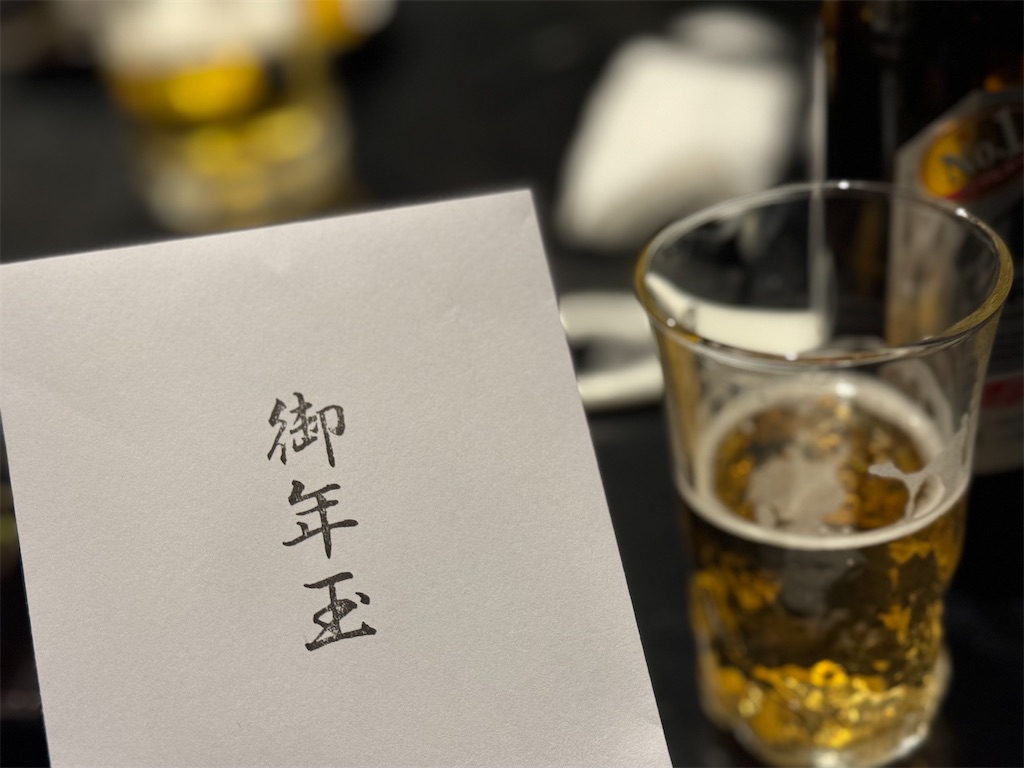 御年玉
No.1